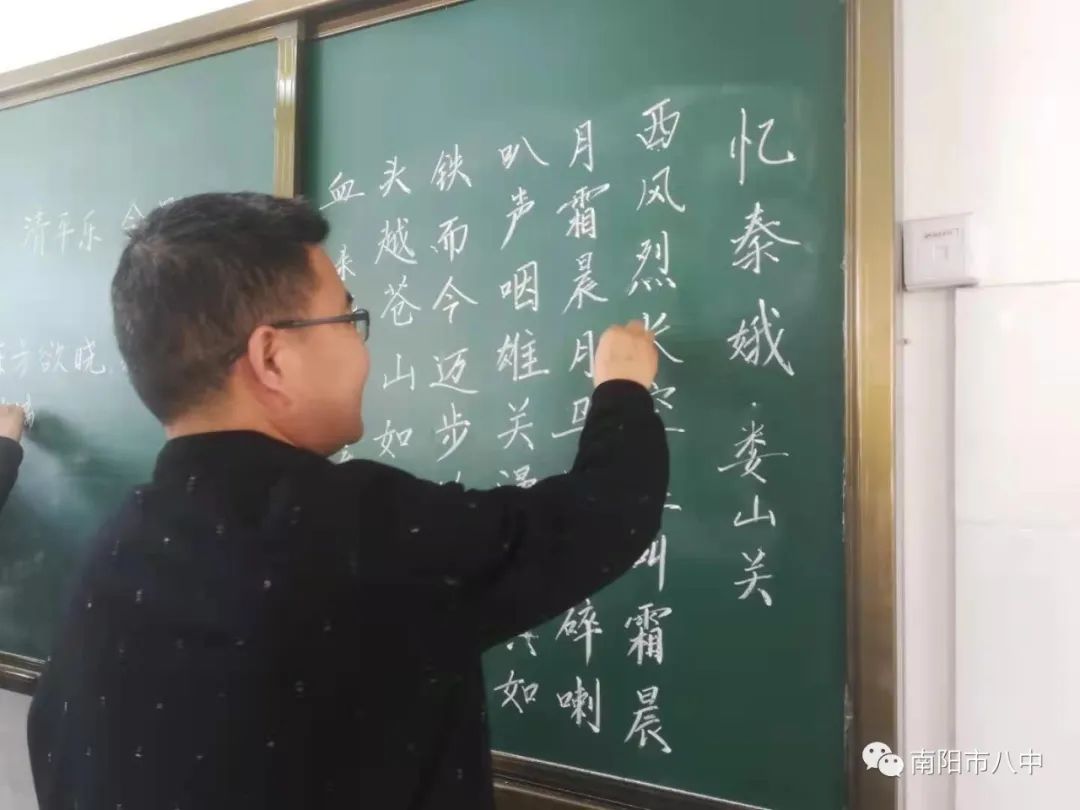 忆秦娥·娄山关
西风烈长空叫霜晨
月霜晨月马碎喇
叭声咽雄关漫如
铁而今迈步
头越苍山如
血
清平乐
方欲晓,
南阳市八中